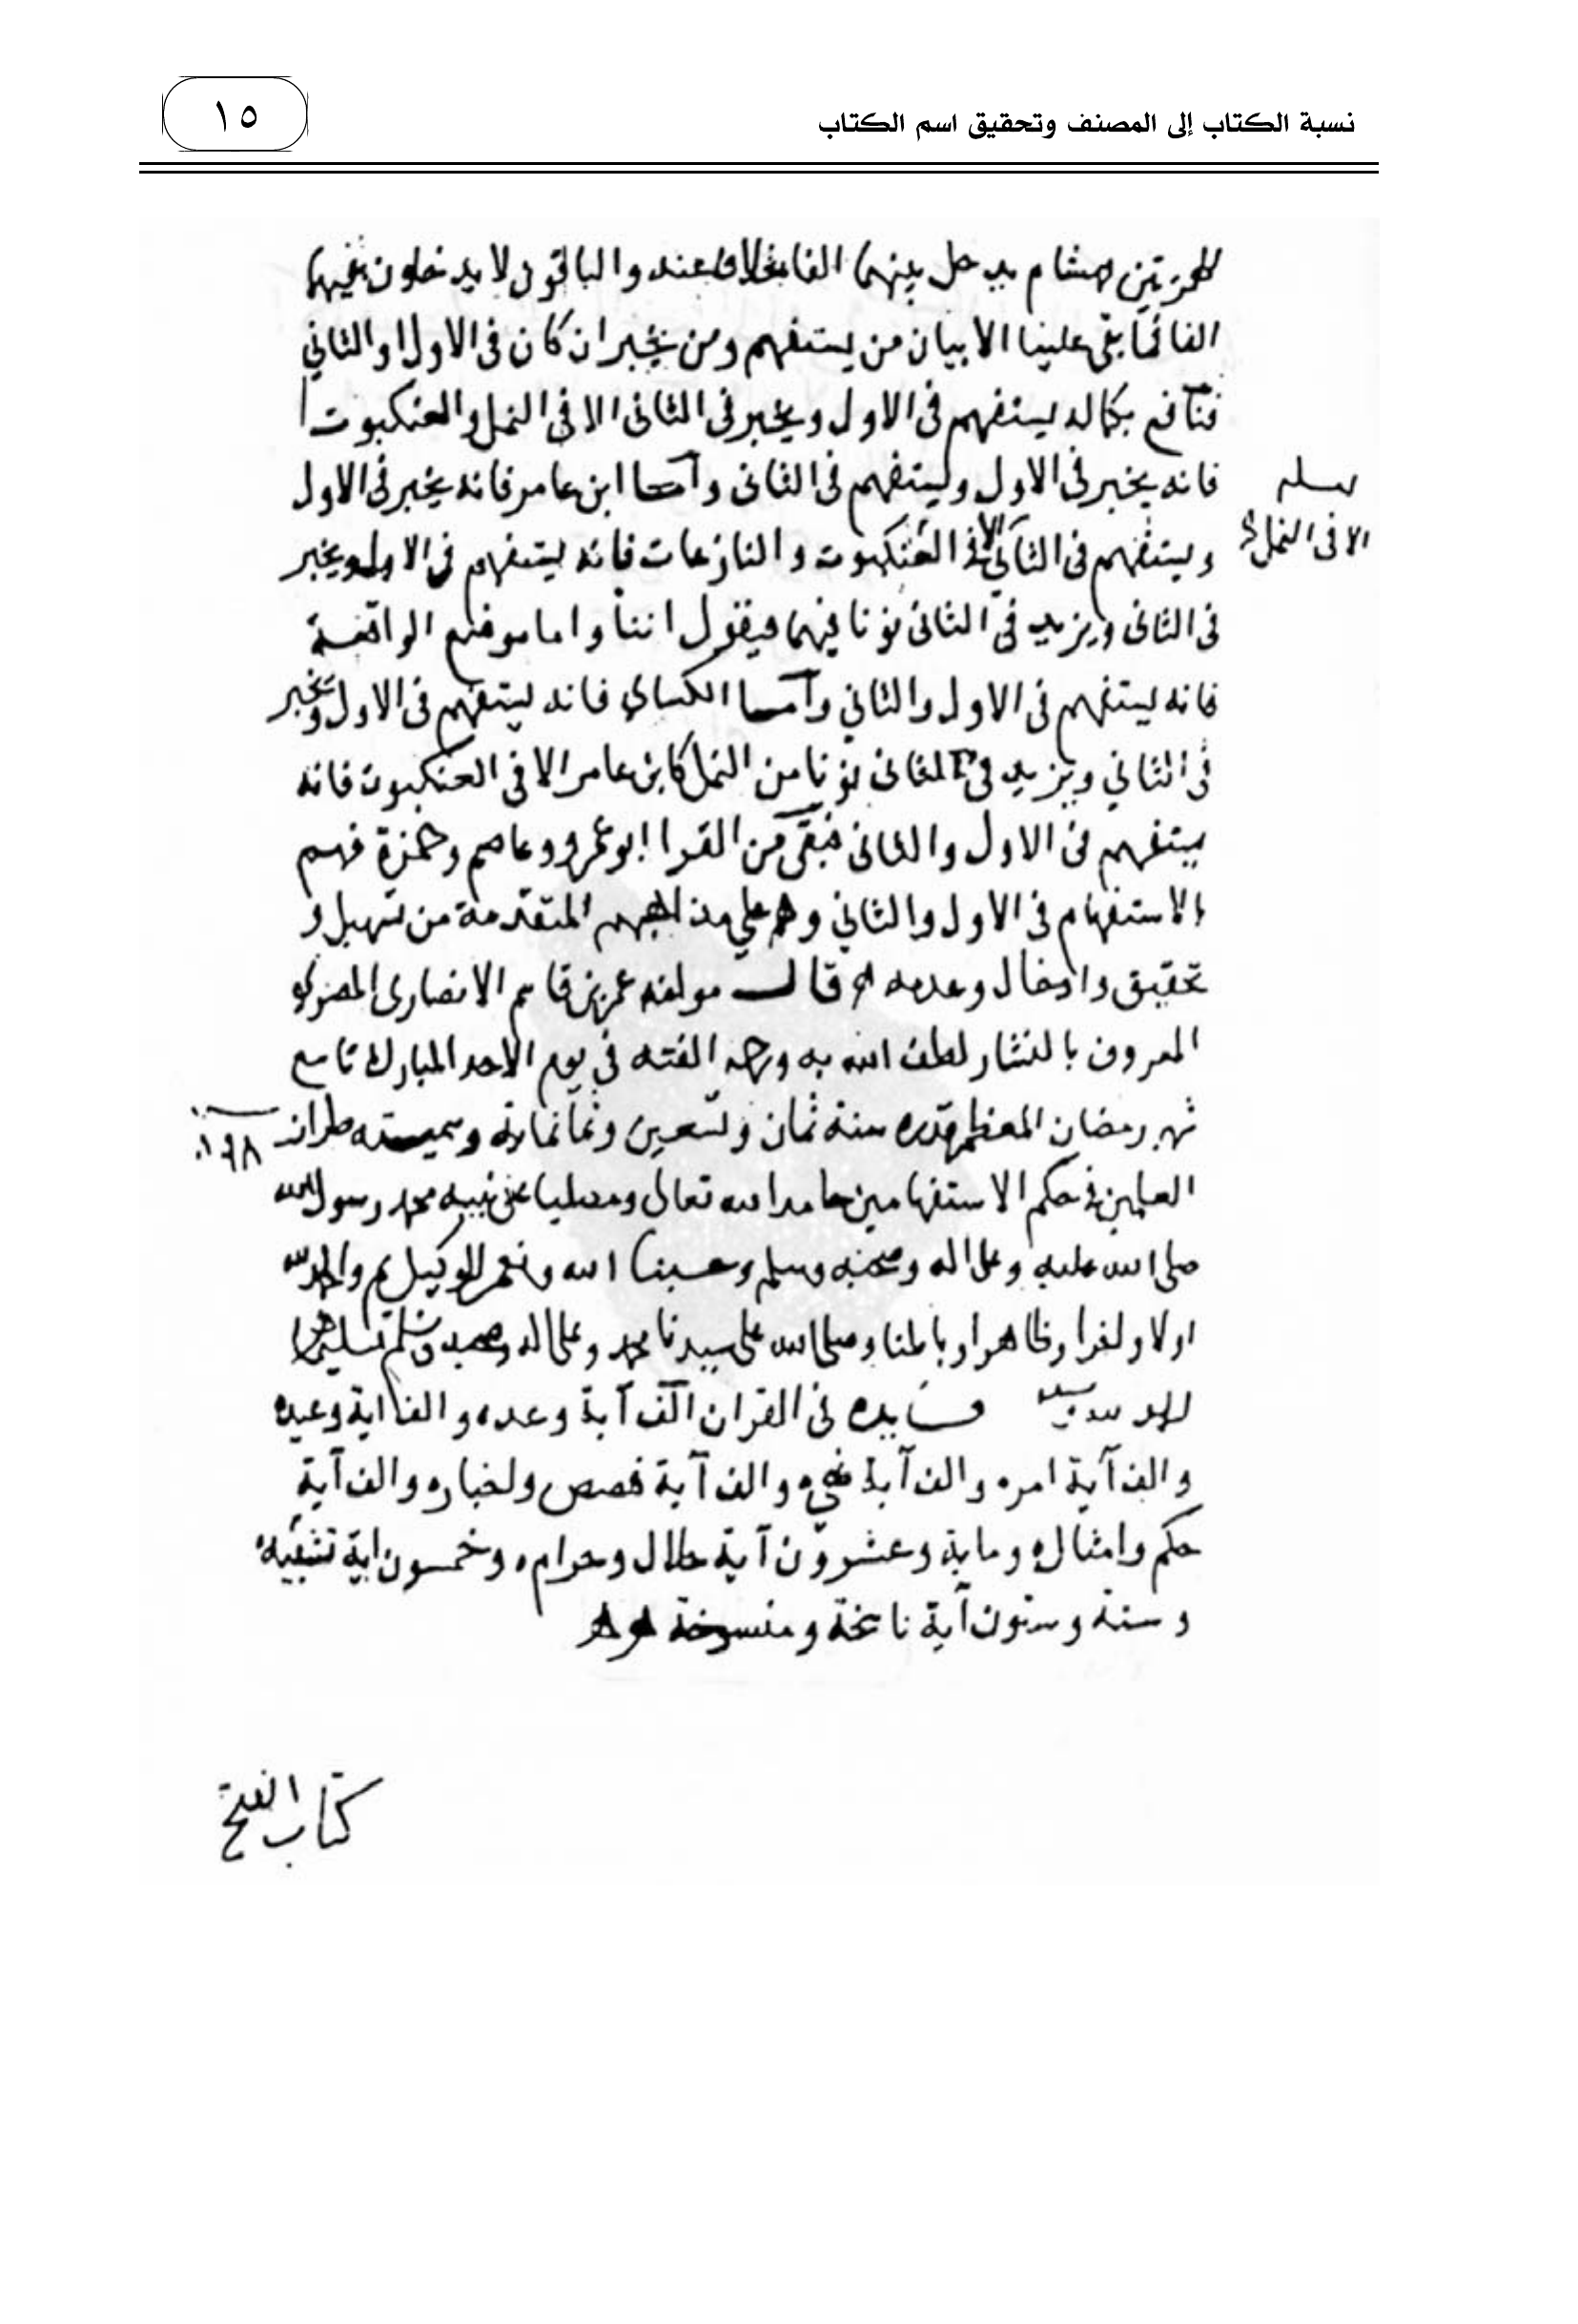 نسبة الكتاب إلى المصنف وتحقيق اسم الكتاب
١٥
الهمزتين هشام يدخل بينهما الفا بخلاف عنه والباقون لا يدخلون بينهما
الفا فما بقى علينا الا بيان من يستفهم ومن يخبر ان كان فى الاول او الثاني
فنافع بكماله يستفهم فى الاول ويخبر فى الثانى الا فى النمل والعنكبوت
فانه يخبر فى الاول ويستفهم فى الثانى وأما ابن عامر فانه يخبر فى الاول
الا فى النمل
ويستفهم فى الثانى الا فى العنكبوت والنازعات فانه يستفهم فى الاول ويخبر
فى الثانى ويزيد فى الثانى نونا فيهما فيقول اننا واما موضع الواقعة
فانه يستفهم فى الاول والثاني وأما الكساي فانه يستفهم فى الاول ويخبر
فى الثاني ويزيد فى الثانى نونا من النمل كابن عامر الا فى العنكبوت فانه
يستفهم فى الاول والثانى فبقى من القرا ابو عمرو وعاصم وحمزة فهم
الاستفهام فى الاول والثاني وهم على مذاهبهم المتقدمة من تسهيل و
تحقيق وادخال وعدمه قال مولفه عمر بن قاسم الانصارى المصرى
المعروف بالنشار لطف الله به ورحمه الفته في يوم الاحد المبارك تاسع
شهر رمضان المعظم قدره سنة ثمان وتسعين وثمانماية وسميته طراز
٨٩٨
العلمين فى حكم الاستفهامين حامدا لله تعالى ومصليا على نبيه محمد رسول الله
صلى الله عليه وعلى اله وصحبه وسلم وحسبنا الله ونعم الوكيل تم والحمد لله
اولا واخرا وظاهرا وباطنا وصلى الله على سيدنا محمد وعلى اله وصحبه وسلم تسليما
فايده فى القران الف آية وعده والف اية وعيده
والف آية امره والف آية نهيه والف آية قصص واخباره والف آية
حكم وامثاله وماية وعشرون آية حلال وحرام وخمسون اية تشبيه
وستة وستون آية ناسخة ومنسوخة
كتاب الفتح